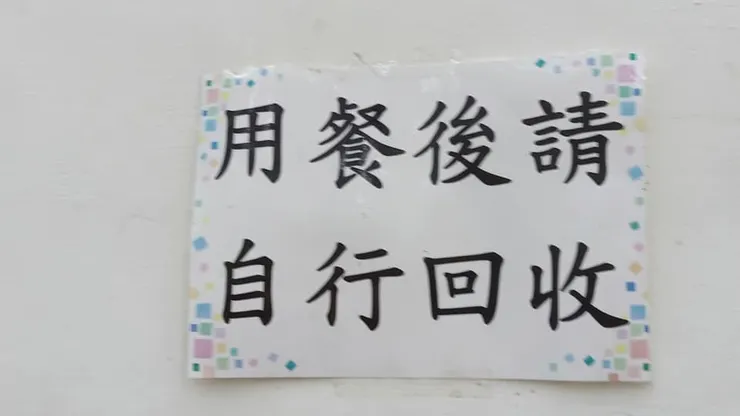 用餐後請
自行回收